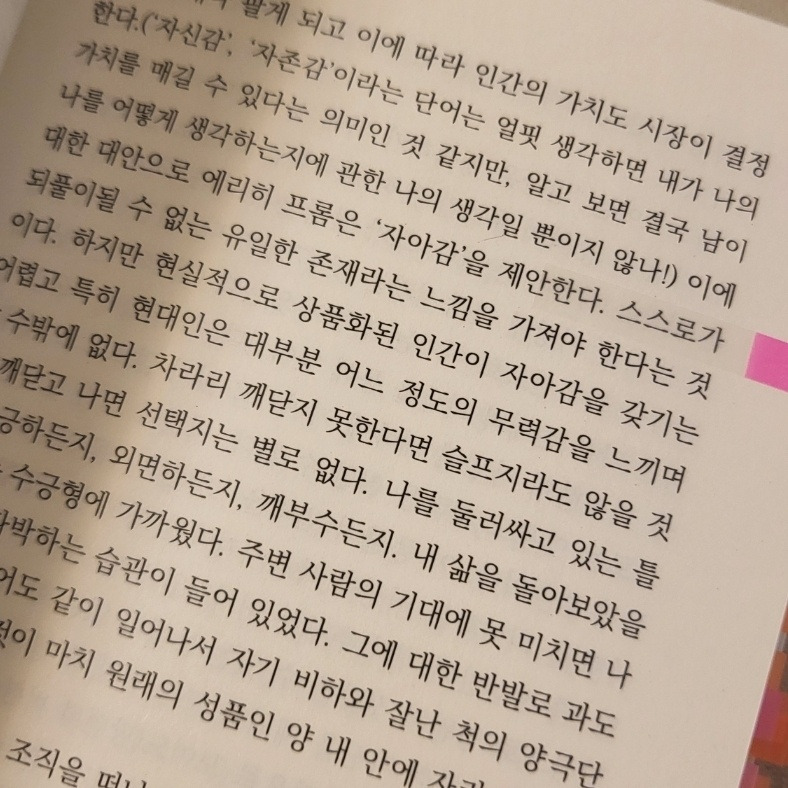 팔게 되고 이에 따라 인간의 가치도 시장이 결정
한다.('자신감', '자존감'이라는 단어는 얼핏 생각하면 내가 나의
가치를 매길 수 있다는 의미인 것 같지만, 알고 보면 결국 남이
나를 어떻게 생각하는지에 관한 나의 생각일 뿐이지 않나!) 이에
대한 대안으로 에리히 프롬은 '자아감'을 제안한다. 스스로가
되풀이될 수 없는 유일한 존재라는 느낌을 가져야 한다는 것
이다. 하지만 현실적으로 상품화된 인간이 자아감을 갖기는
어렵고 특히 현대인은 대부분 어느 정도의 무력감을 느끼며
수밖에 없다. 차라리 깨닫지 못한다면 슬프지라도 않을 것
깨닫고 나면 선택지는 별로 없다. 나를 둘러싸고 있는 틀
긍하든지, 외면하든지, 깨부수든지. 내 삶을 돌아보았을
수긍형에 가까웠다. 주변 사람의 기대에 못 미치면 나
박하는 습관이 들어 있었다. 그에 대한 반발로 과도
어도 같이 일어나서 자기 비하와 잘난 척의 양극단
것이 마치 원래의 성품인 양 내 안에
조직을